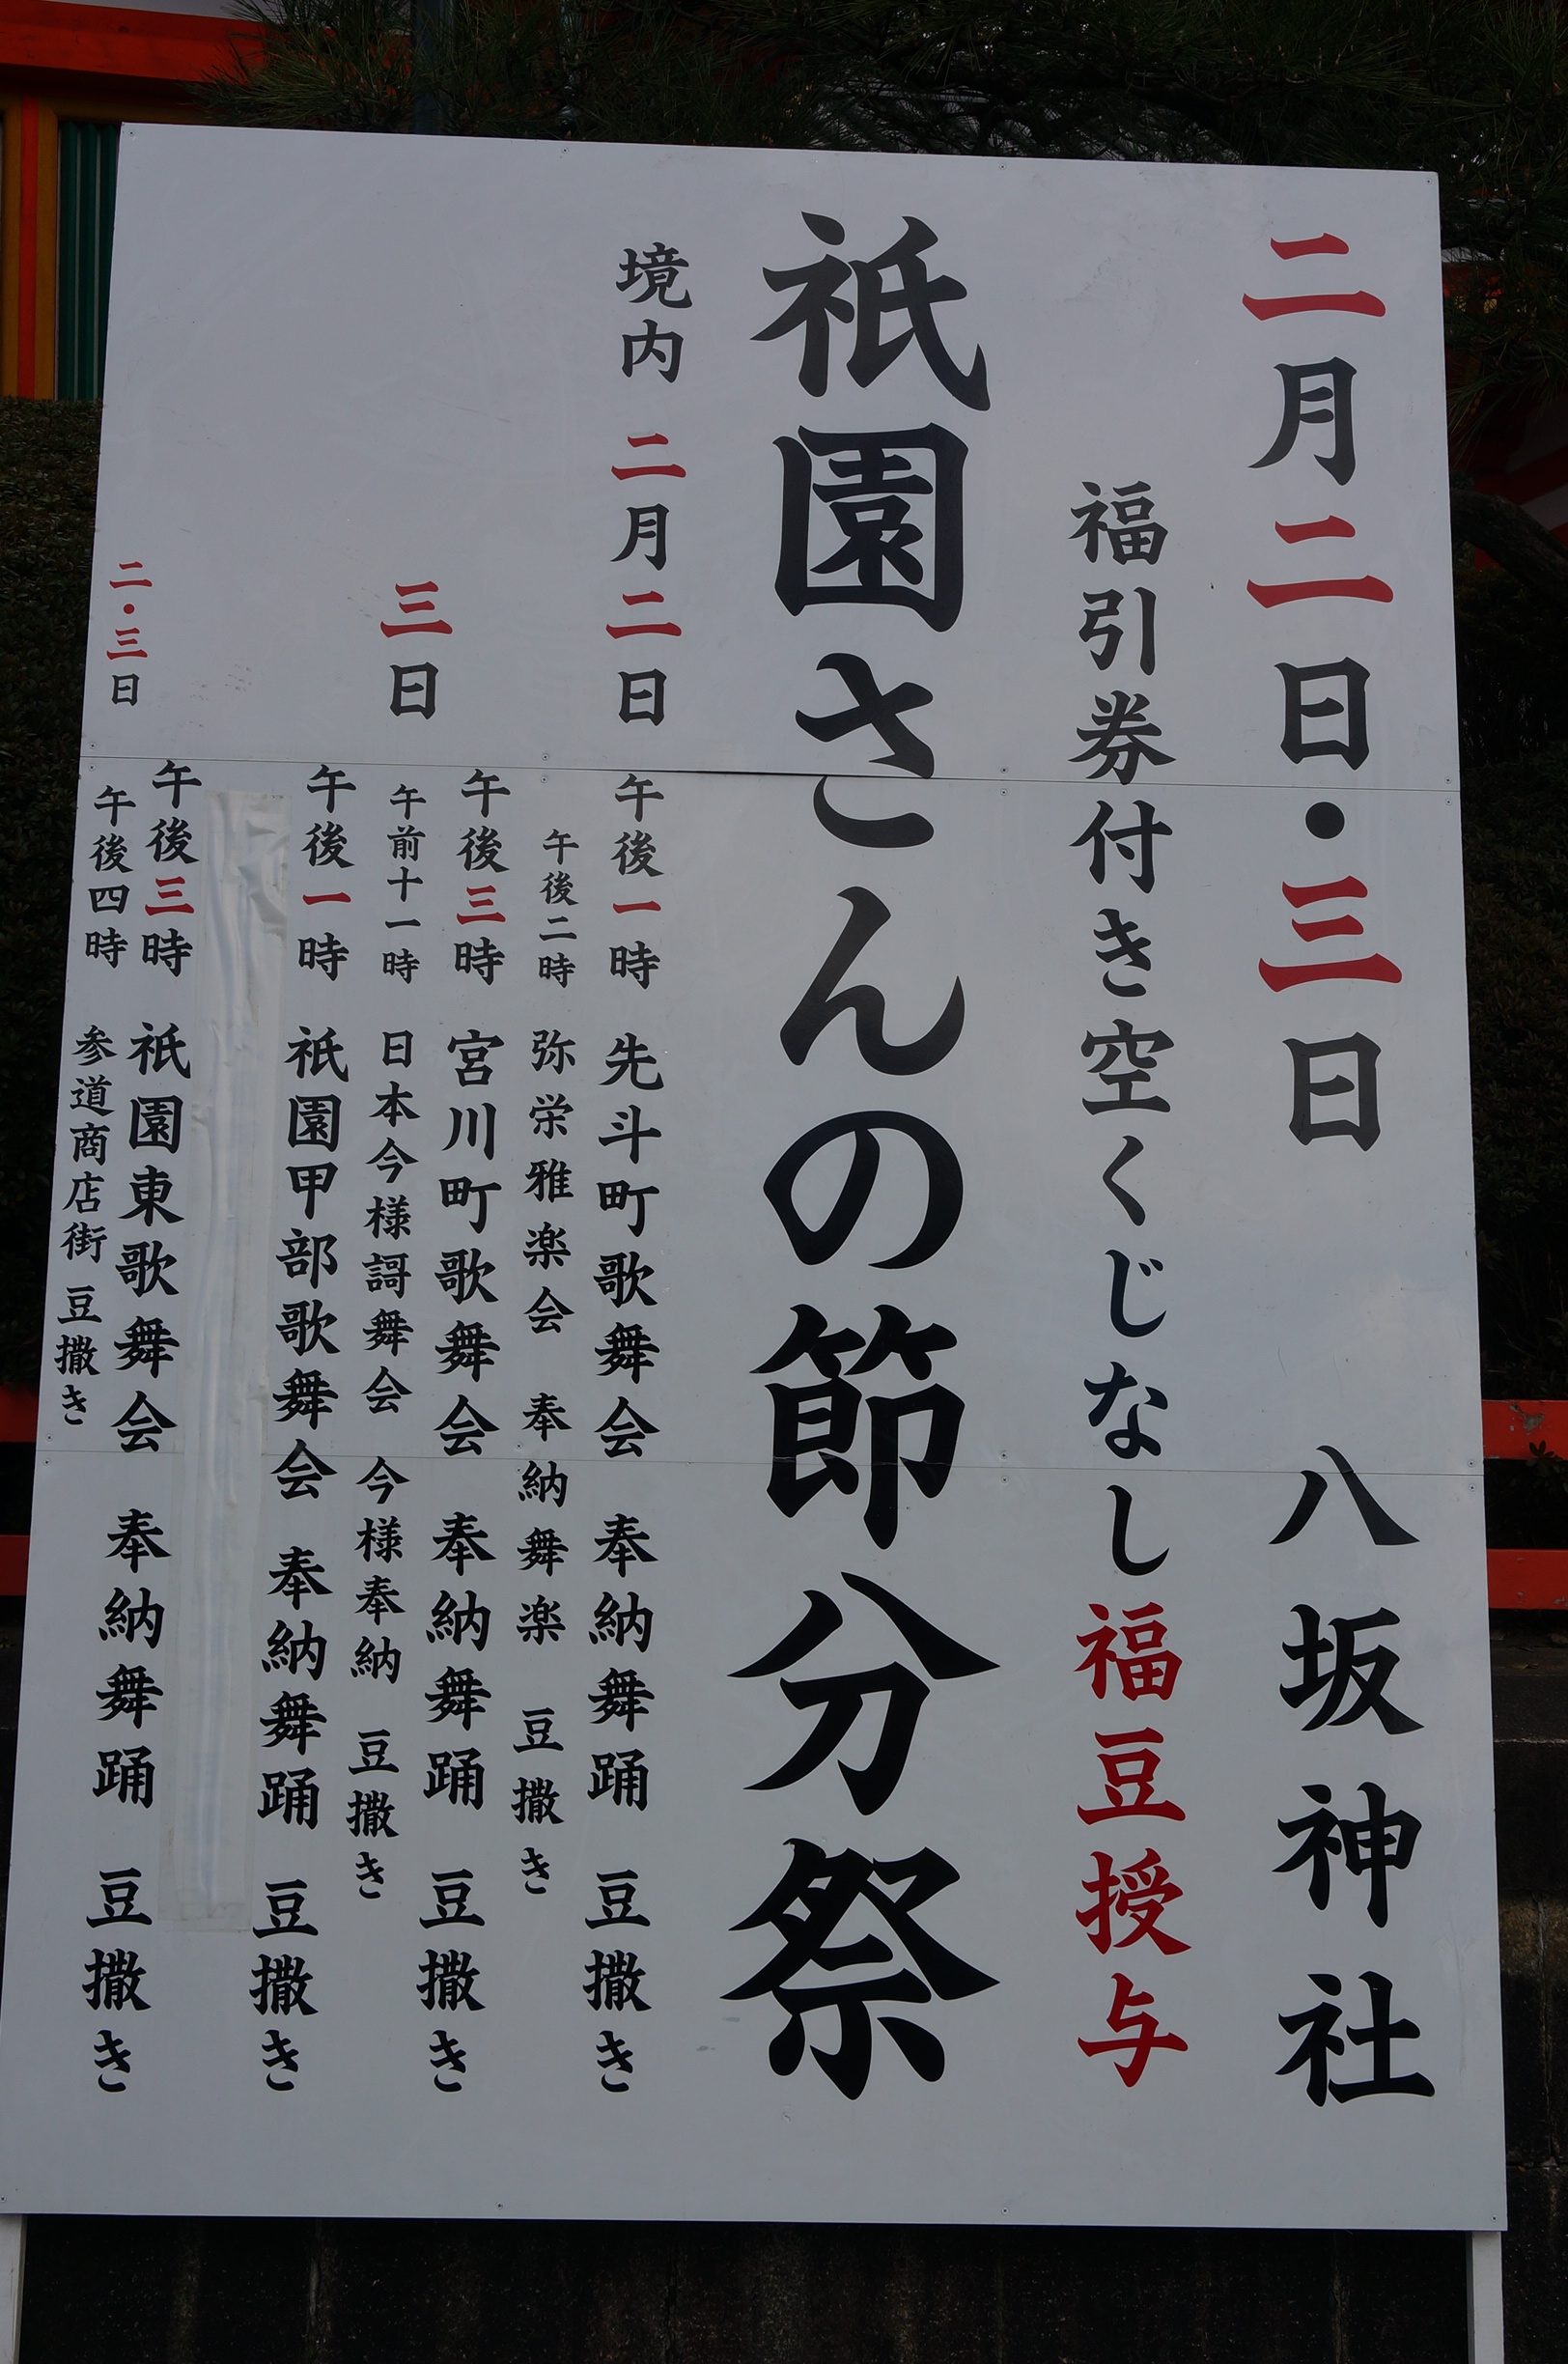 二月二日・三日 八坂神社
福引券付き空くじなし福豆授与
祇園さんの節分祭
境内 二月二日 午後一時 先斗町歌舞会 奉納舞踊 豆撒き
午後二時 弥栄雅楽会 奉納舞楽 豆撒き
午後三時 宮川町歌舞会 奉納舞踊 豆撒き
三日 午前十一時 日本今様謌舞会 今様奉納 豆撒き
午後一時 祇園甲部歌舞会 奉納舞踊 豆撒き
午後三時 祇園東歌舞会 奉納舞踊 豆撒き
二・三日 午後四時 参道商店街 豆撒き